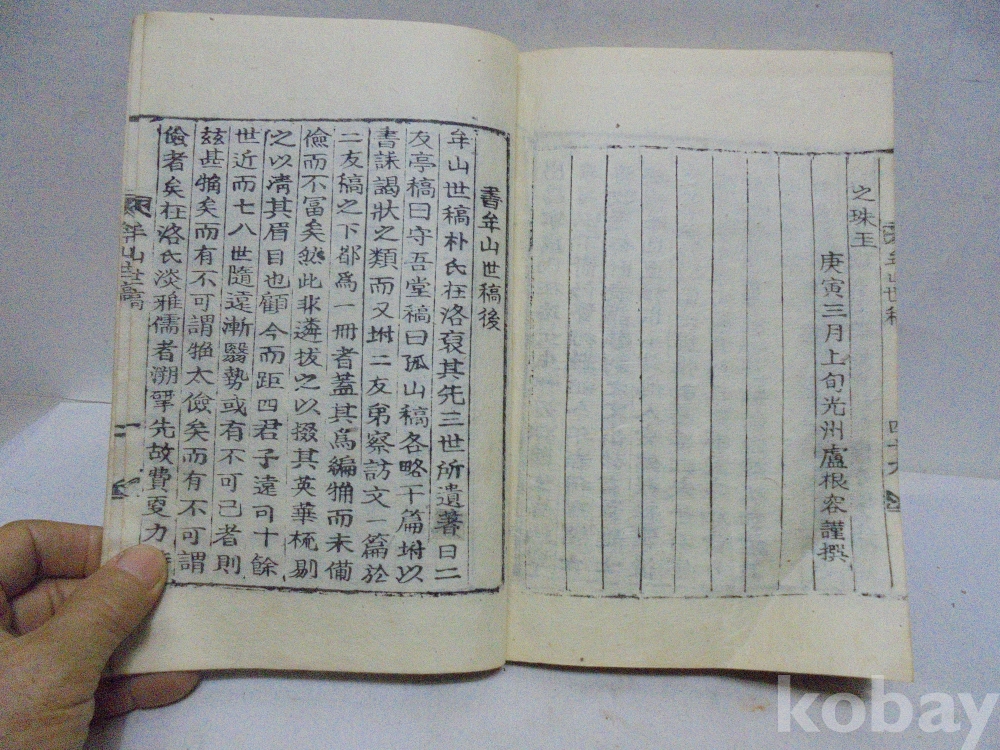 之珠玉
庚寅三月上旬光州盧根容謹撰
牟山世稿
四十六
書牟山世稿後
牟山世稿朴氏在洛裒其先三世所遺著曰二
友亭稿曰守吾堂稿曰孤山稿各略干篇坿以
書誄謁狀之類而又坿二友弟察訪文一篇於
二友稿之下都爲一冊者蓋其爲編觕而未備
儉而不富矣然此非遴拔之以掇其英華梳剔
之以淸其眉目也顧今而距四君子遠可十餘
世近而七八世隨遠漸翳勢或有不可已者則
玆甚觕矣而有不可謂觕太儉矣而有不可謂
儉者矣在洛氏淡雅儒者溯鞏先故費夏力
牟山世稿
一
kobay